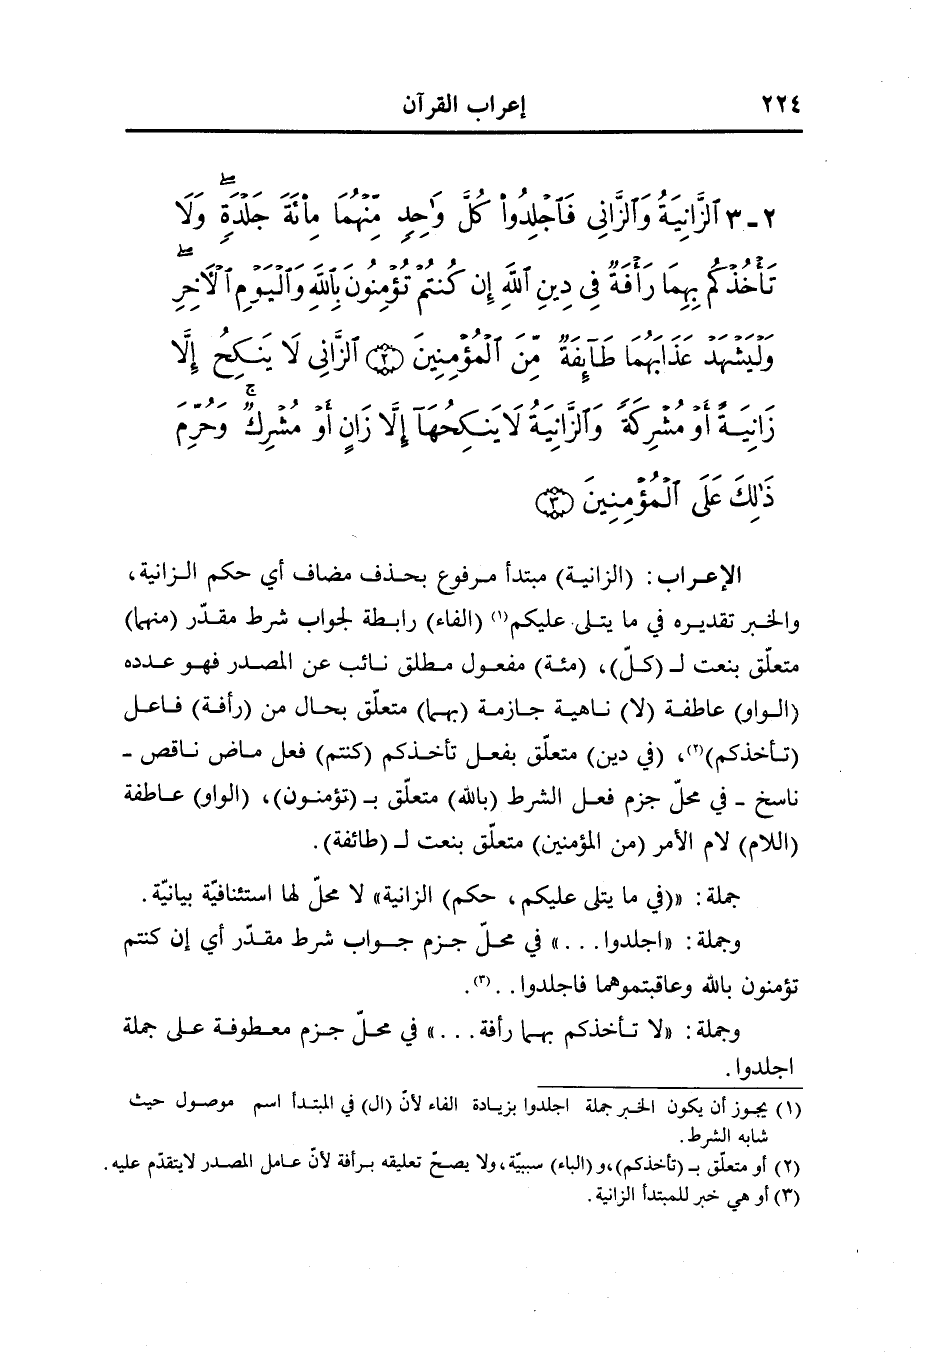 ٢٢٤ إعراب القرآن
٢ - ٣ ٱلزَّانِيَةُ وَٱلزَّانِى فَٱجْلِدُوا۟ كُلَّ وَٰحِدٍ مِّنْهُمَا مِا۟ئَةَ جَلْدَةٍ ۖ وَلَا
تَأْخُذْكُم بِهِمَا رَأْفَةٌ فِى دِينِ ٱللَّهِ إِن كُنتُمْ تُؤْمِنُونَ بِٱللَّهِ وَٱلْيَوْمِ ٱلْـَٔاخِرِ ۖ
وَلْيَشْهَدْ عَذَابَهُمَا طَآئِفَةٌ مِّنَ ٱلْمُؤْمِنِينَ ﴿٢﴾ ٱلزَّانِى لَا يَنكِحُ إِلَّا
زَانِيَةً أَوْ مُشْرِكَةً وَٱلزَّانِيَةُ لَا يَنكِحُهَآ إِلَّا زَانٍ أَوْ مُشْرِكٌ ۚ وَحُرِّمَ
ذَٰلِكَ عَلَى ٱلْمُؤْمِنِينَ ﴿٣﴾
الإعراب: (الزانية) مبتدأ مرفوع بحذف مضاف أي حكم الزانية،
والخبر تقديره في ما يتلى عليكم(١) (الفاء) رابطة لجواب شرط مقدّر (منهما)
متعلّق بنعت لـ (كلّ)، (مئة) مفعول مطلق نائب عن المصدر فهو عدده
(الواو) عاطفة (لا) ناهية جازمة (بهما) متعلّق بحال من (رأفة) فاعل
(تأخذكم)(٢)، (في دين) متعلّق بفعل تأخذكم (كنتم) فعل ماض ناقص -
ناسخ - في محلّ جزم فعل الشرط (بالله) متعلّق بـ (تؤمنون)، (الواو) عاطفة
(اللام) لام الأمر (من المؤمنين) متعلّق بنعت لـ (طائفة).
جملة: «(في ما يتلى عليكم، حكم) الزانية» لا محلّ لها استئنافيّة بيانيّة.
وجملة: «اجلدوا...» في محلّ جزم جواب شرط مقدّر أي إن كنتم
تؤمنون بالله وعاقبتموهما فاجلدوا..(٣).
وجملة: «لا تأخذكم بهما رأفة...» في محلّ جزم معطوفة على جملة
اجلدوا.
(١) يجوز أن يكون الخبر جملة اجلدوا بزيادة الفاء لأنّ (ال) في المبتدأ اسم موصول حيث
شابه الشرط.
(٢) أو متعلّق بـ (تأخذكم)،و (الباء) سببيّة، ولا يصحّ تعليقه برأفة لأنّ عامل المصدر لايتقدّم عليه.
(٣) أو هي خبر للمبتدأ الزانية.